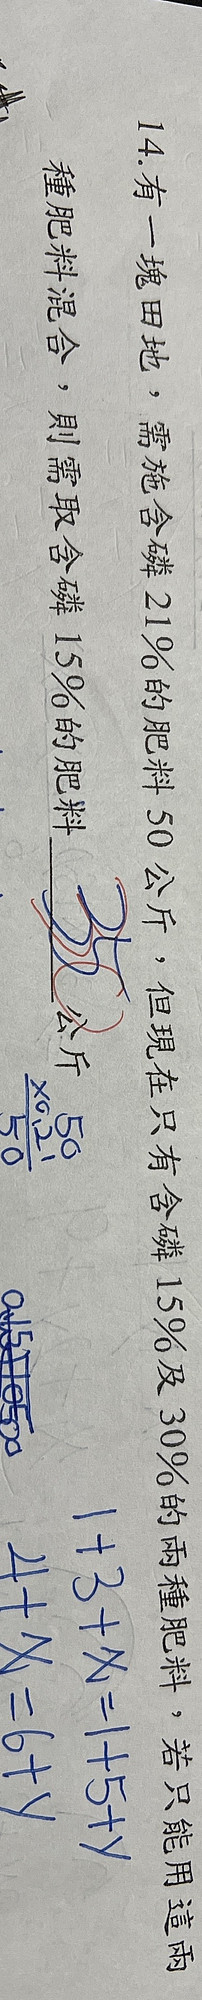 14.有一塊田地，需施含磷21%的肥料50公斤，但現在只有含磷15%及30%的兩種肥料，若只能用這兩
種肥料混合，則需取含磷15%的肥料 公斤
50
×0.21
50
1+3+x=1+5+y
4+x=6+y